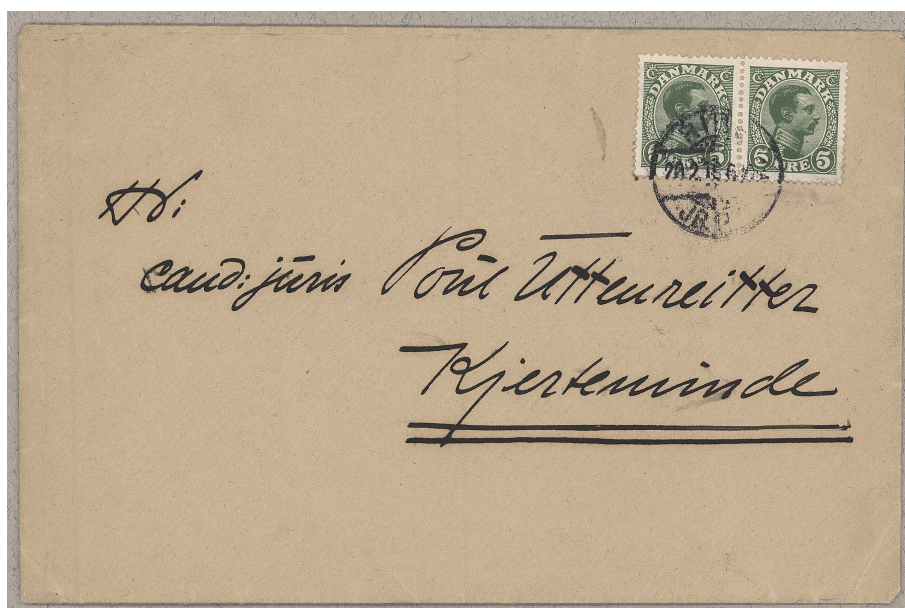 DANMARK DANMARK
5 ØRE 5 5 ØRE 5
Hr:
cand: juris Poul Uttenreitter
Kjerteminde